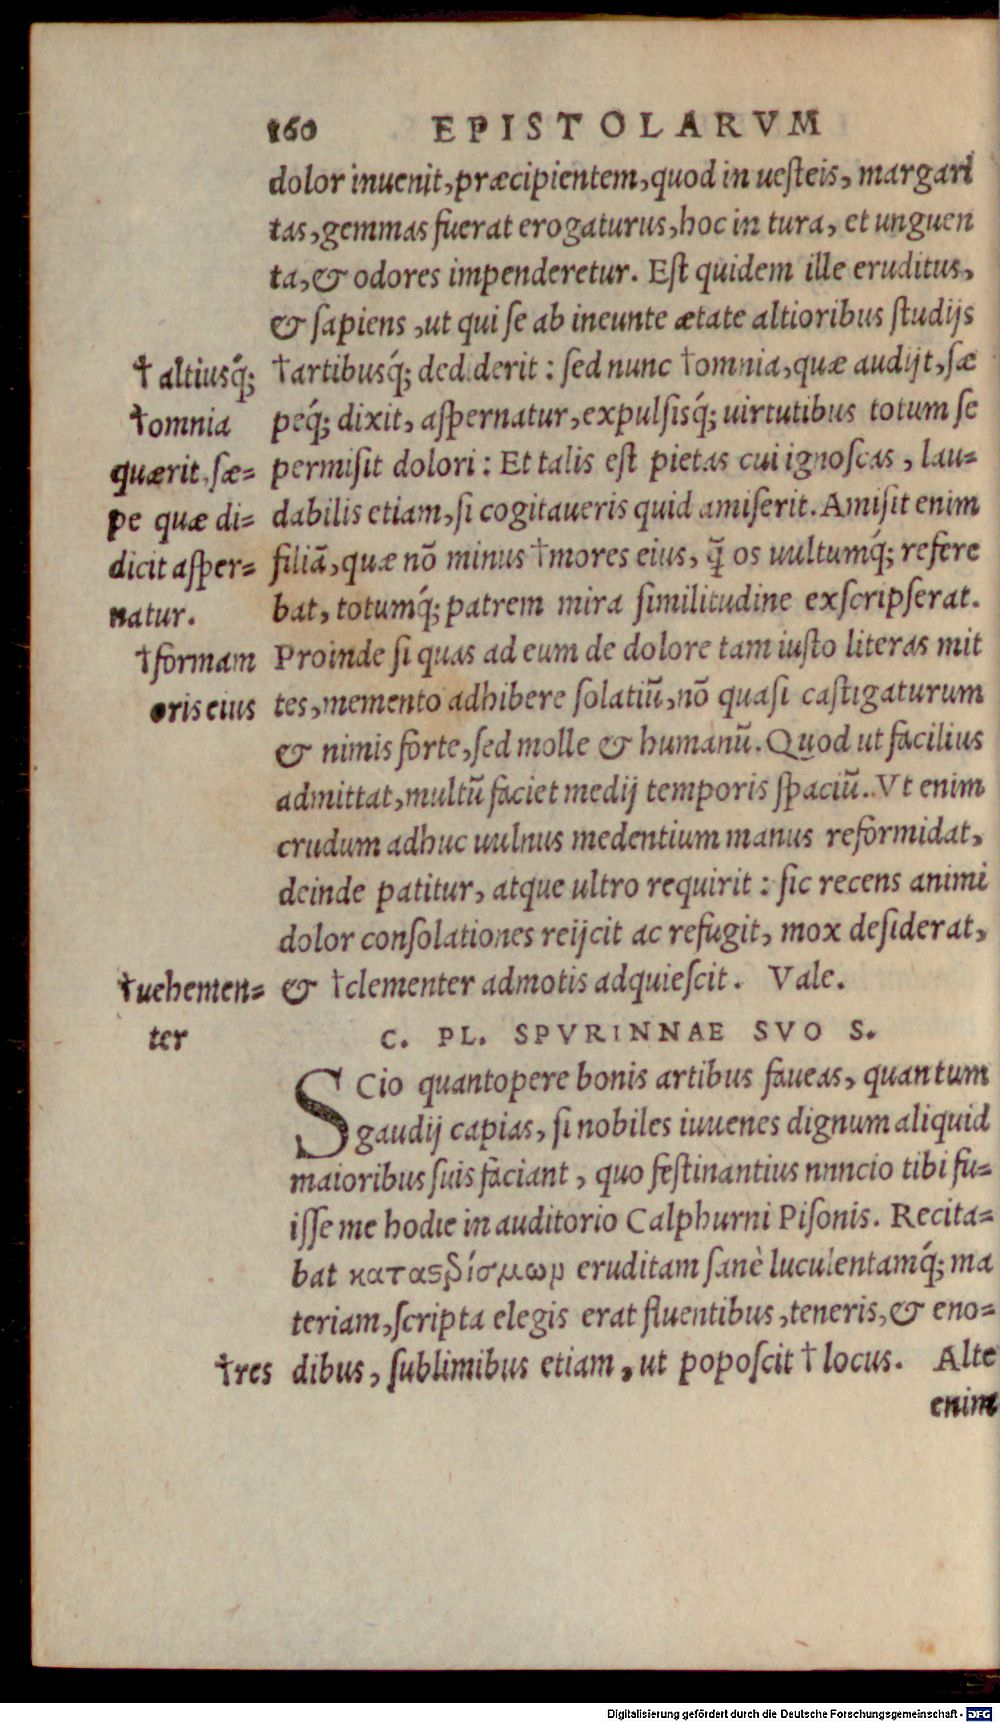 160 EPISTOLARVM
dolor inuenit, præcipientem, quod in uesteis, margari
tas, gemmas fuerat erogaturus, hoc in tura, et unguen
ta, & odores impenderetur. Est quidem ille eruditus,
& sapiens, ut qui se ab ineunte ætate altioribus studijs
†artibusq́; dediderit: sed nunc †omnia, quæ audijt, sæ
peq́; dixit, aspernatur, expulsisq́; uirtutibus totum se
permisit dolori: Et talis est pietas cui ignoscas, lau=
dabilis etiam, si cogitaueris quid amiserit. Amisit enim
filiā, quæ nō minus †mores eius, q̄ os uultumq́; refere
bat, totumq́; patrem mira similitudine exscripserat.
Proinde si quas ad eum de dolore tam iusto literas mit
tes, memento adhibere solatiū, nō quasi castigaturum
& nimis forte, sed molle & humanū. Quod ut facilius
admittat, multū faciet medij temporis spaciū. Vt enim
crudum adhuc uulnus medentium manus reformidat,
deinde patitur, atque ultro requirit: sic recens animi
dolor consolationes reijcit ac refugit, mox desiderat,
& †clementer admotis adquiescit. Vale.
† altiusq́;
†omnia
quærit, sæ=
pe quæ di=
dicit asper=
natur.
†formam
oris eius
†uehemen=
ter
C. PL. SPVRINNAE SVO S.
SCio quantopere bonis artibus faueas, quantum
gaudij capias, si nobiles iuuenes dignum aliquid
maioribus suis faciant, quo festinantius nnncio tibi fu=
isse me hodie in auditorio Calphurni Pisonis. Recita=
bat καταςερίσμωρ eruditam sanè luculentamq́; ma
teriam, scripta elegis erat fluentibus, teneris, & eno=
dibus, sublimibus etiam, ut poposcit † locus. Alte
†res
enim
Digitalisierung gefördert durch die Deutsche Forschungsgemeinschaft - DFG